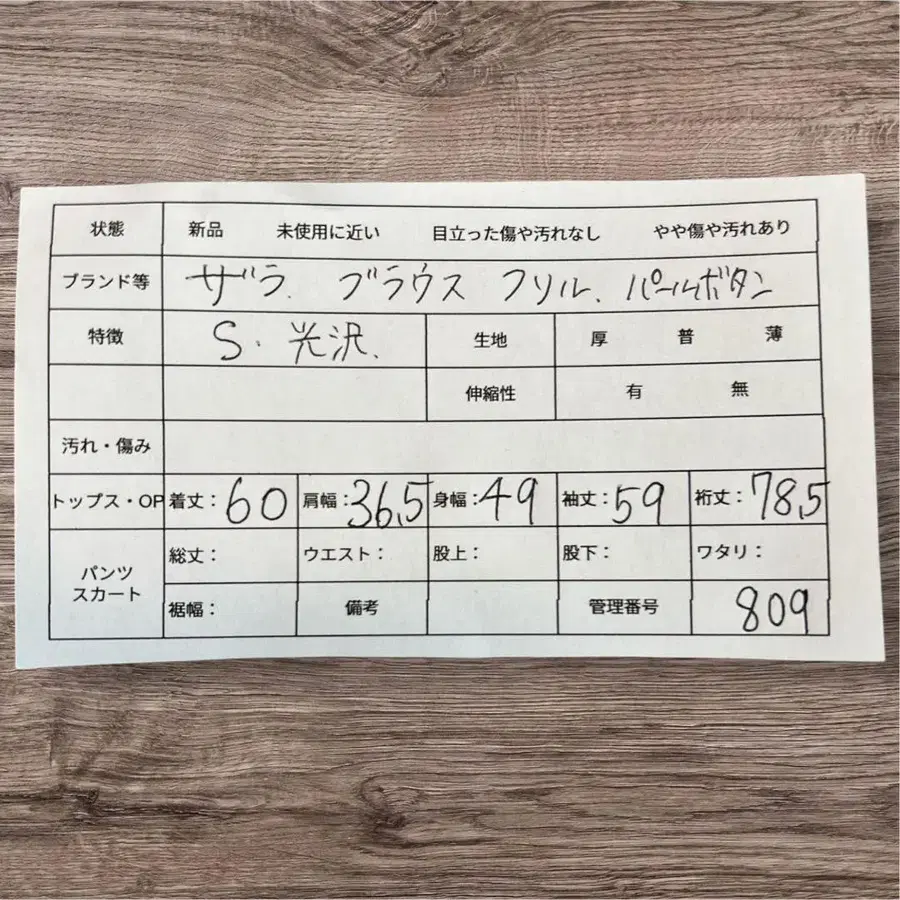 状態 新品 未使用に近い 目立った傷や汚れなし やや傷や汚れあり
ブランド等 ザラ. ブラウス フリル. パールボタン
特徴 S. 光沢. 生地 厚 普 薄
伸縮性 有 無
汚れ・傷み
トップス・OP 着丈:60 肩幅:36.5 身幅:49 袖丈:59 裄丈:78.5
パンツ スカート 総丈: ウエスト: 股上: 股下: ワタリ:
裾幅: 備考 管理番号 809